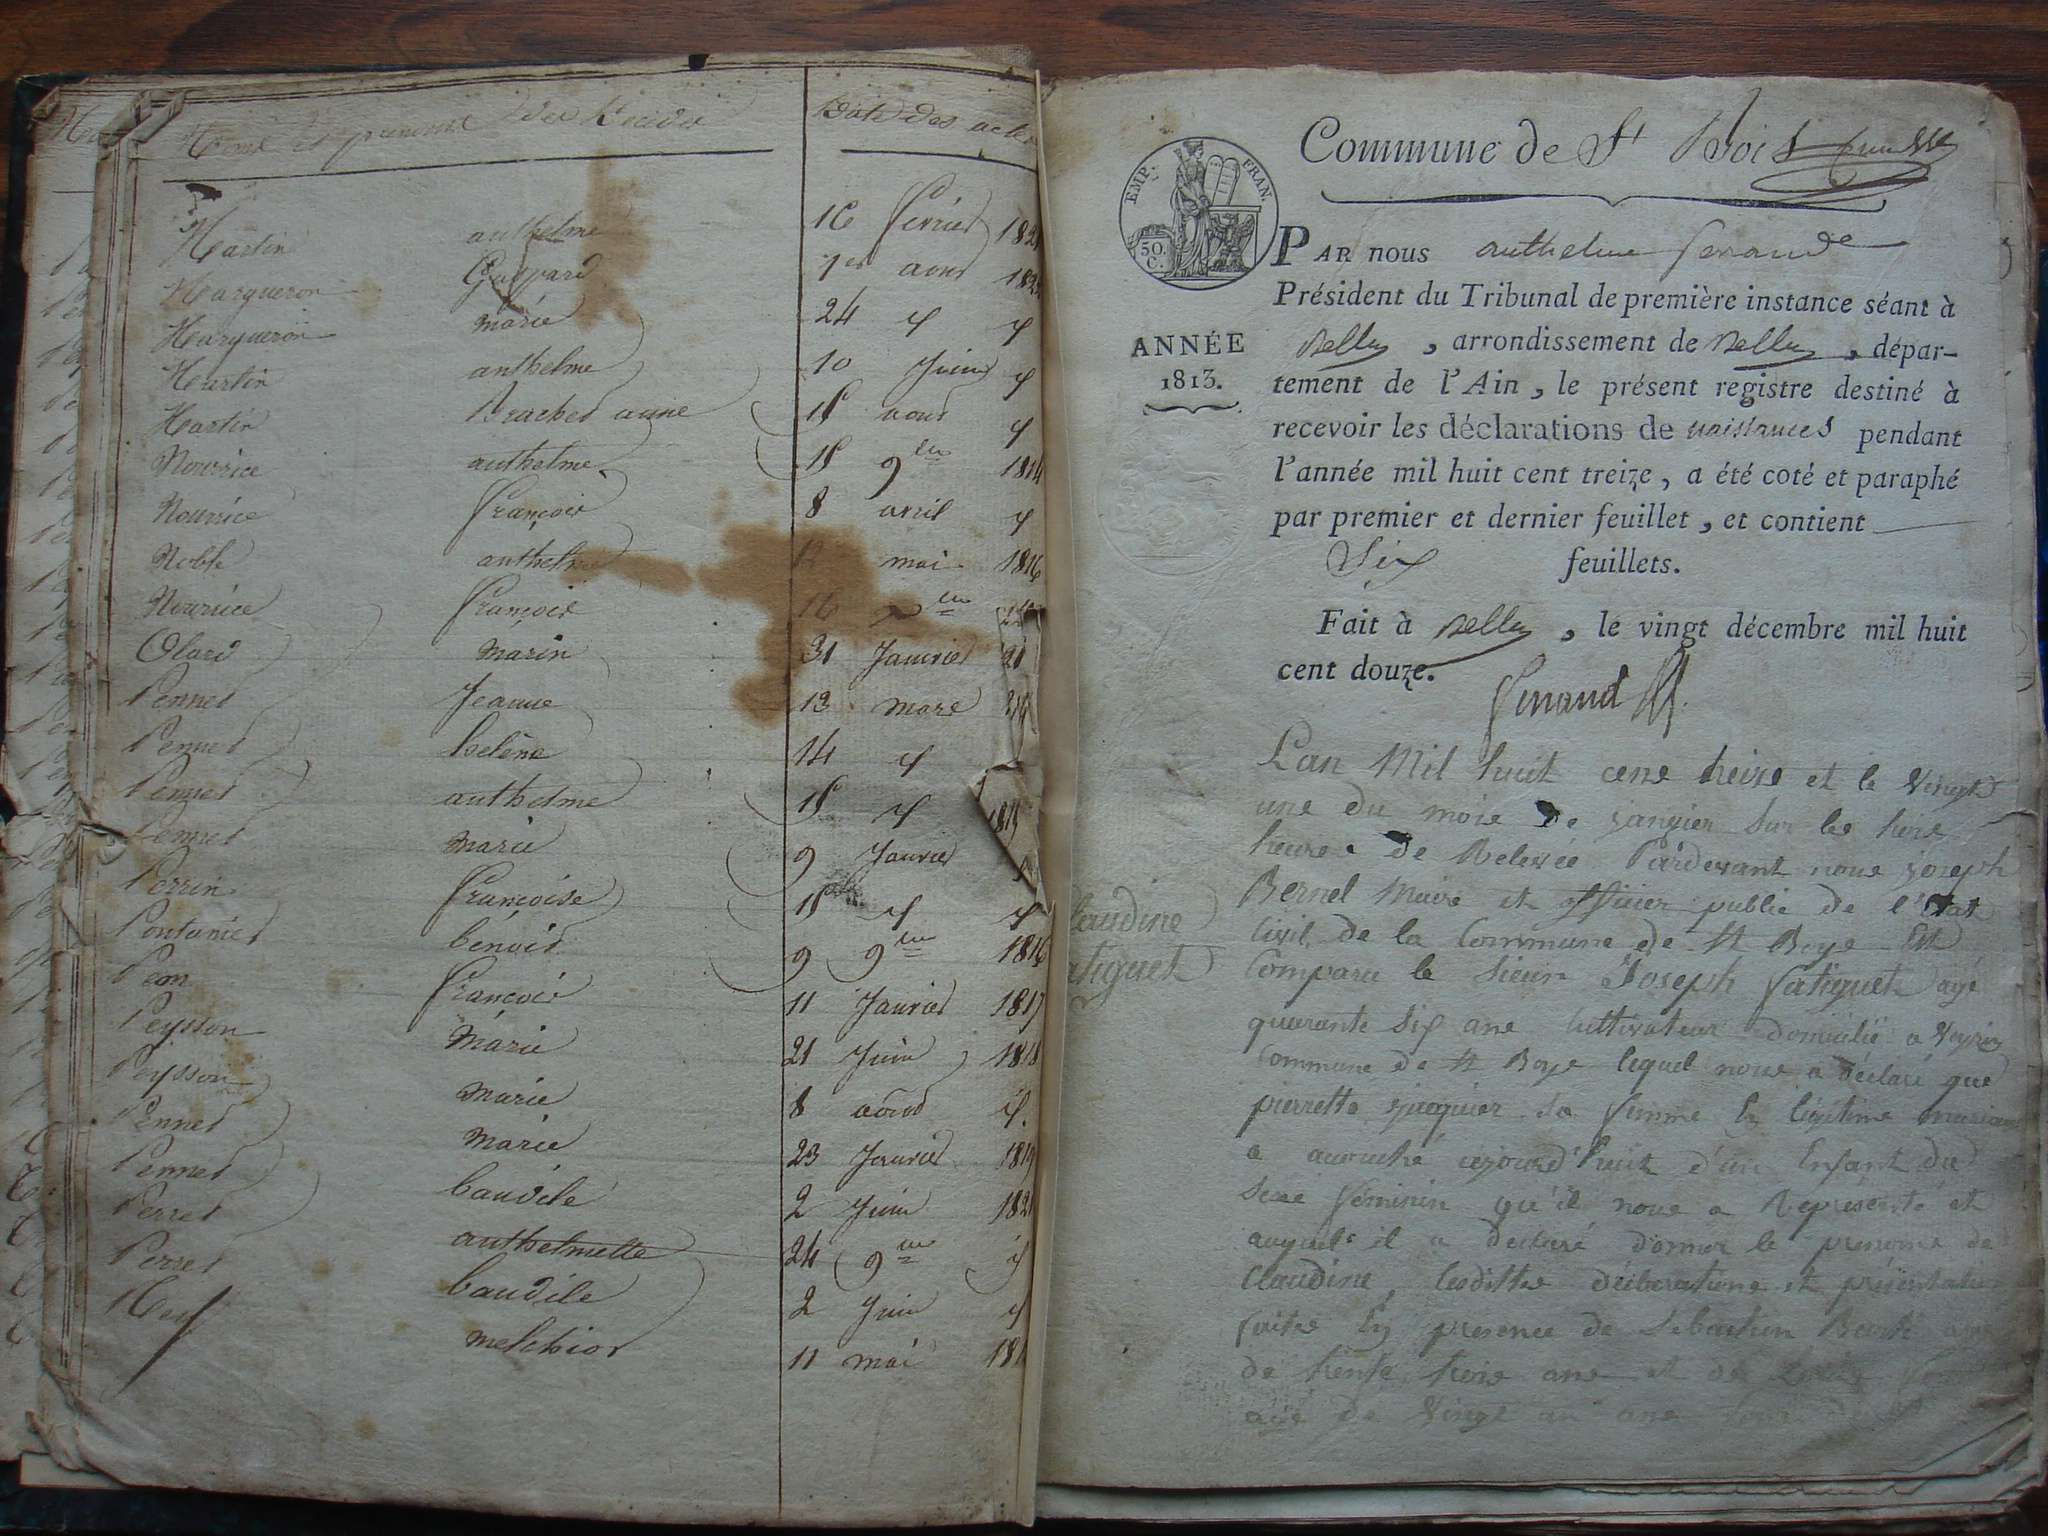 Noms et prénoms des Décédés
Date des actes
Martin anthelme 16 février
Margueron Gaspard 1er aout
Margueron marie 24
Martin anthelme 10 Juin
Martin Brachet anne 15 aout
Nourrice anthelme 15 9bre 1814
Nourrice françois 8 avril
Noble anthelme mai 1816
Nourrice françois 16
Olard Marin 31 Janvier
Pennet Jeanne 13 mars
Pennet helène 14
Pennet anthelme 15 1815
Pennet marie 9 Janvier
Perrin françoise 15
Pontanier benoit 9 9bre 1816
Peon françois 11 Janvier 1817
Peysson Marie 21 Juin 1818
Peysson marie 8 aout
Pennet marie 23 Janvier 1819
Pennet baudile 2 Juin
Perret anthelmette 24 9bre
Perret baudile 2 Juin
melchior 11 mai
EMP. FRAN.
50. C.
Commune de St Bois
ANNÉE
1813.
PAR nous anthelme ferrand
Président du Tribunal de première instance séant à
Belley, arrondissement de Belley, dépar-
tement de l'Ain, le présent registre destiné à
recevoir les déclarations de naissances pendant
l'année mil huit cent treize, a été coté et paraphé
par premier et dernier feuillet, et contient
Six feuillets.
Fait à Belley, le vingt décembre mil huit
cent douze.
ferrand
Claudine
fatiguet
L'an Mil huit cens treize et le vingt
une du mois De janvier sur les trois
heures de Relevée Pardevant nous joseph
Bernel Maire et officier public de l'état
Civil de la Commune de St Boys Est
Comparu le sieur Joseph fatiguet agé
quarante six ans Cultivateur domicilié a Veyrin
Commune de St Boys lequel nous a déclaré que
pierrette jacquier sa femme En légitime
a accouché aujourd'huit d'un Enfant du
sexe féminin qu'il nous a Représenté et
auquel il a déclaré donner le prénoms de
Claudine, lesdittes déclarations et
faites En présence de Sébastien
de trente trois ans et de
agé de vingt un ans